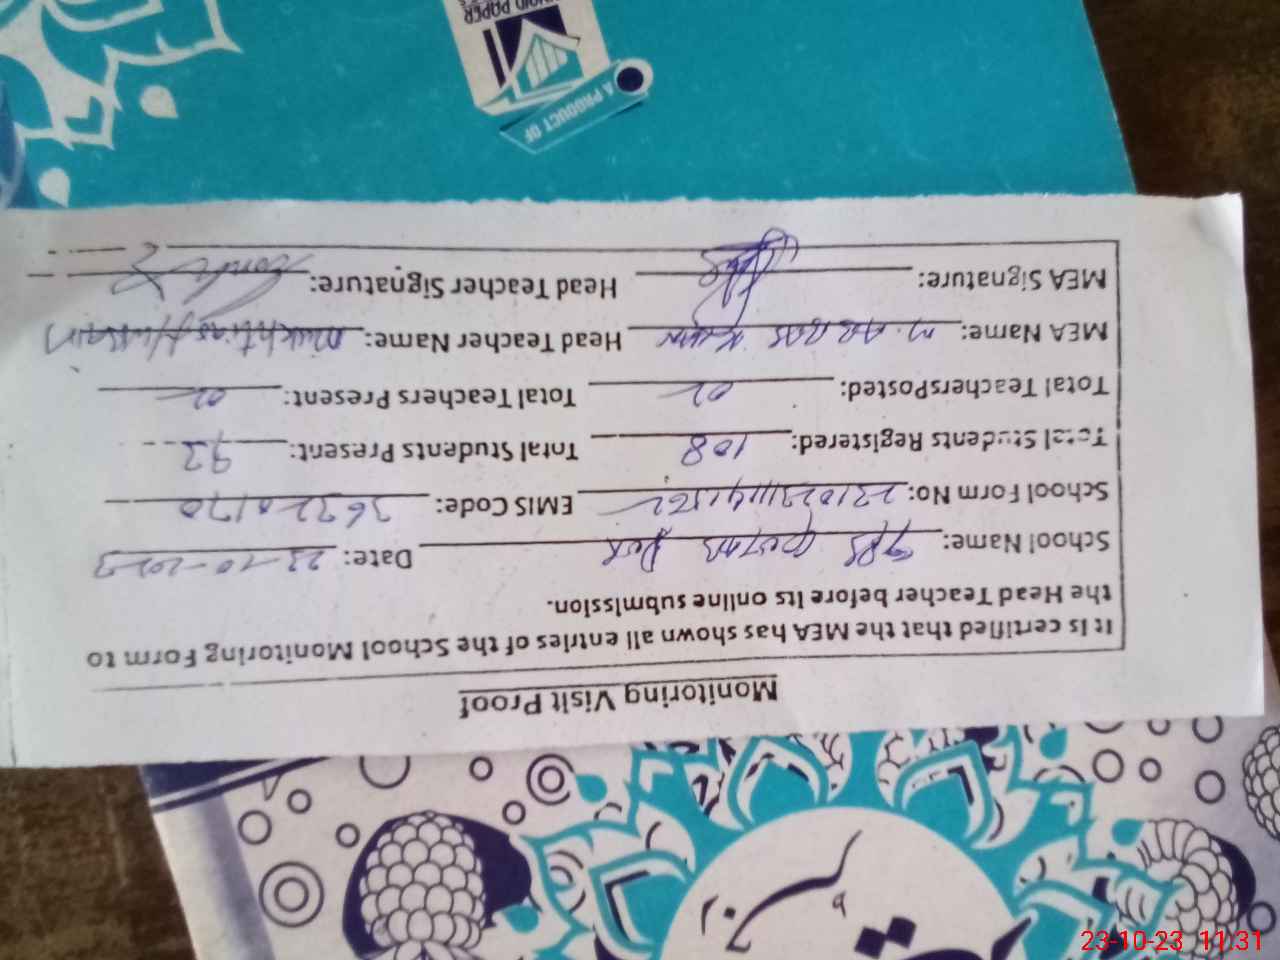 Monitoring Visit Proof
It is certified that the MEA has shown all entries of the School Monitoring Form to
the Head Teacher before its online submission.
School Name: GPS Dek Date: 23-10-2023
School Form No: EMIS Code: 36320170
Total Students Registered: 108 Total Students Present: 93
Total Teachers Posted: 02 Total Teachers Present: 02
MEA Name: M. Head Teacher Name: Mukhtiar Hussain
MEA Signature: Head Teacher Signature:
A PRODUCT OF
PAPER
23-10-23 11:31